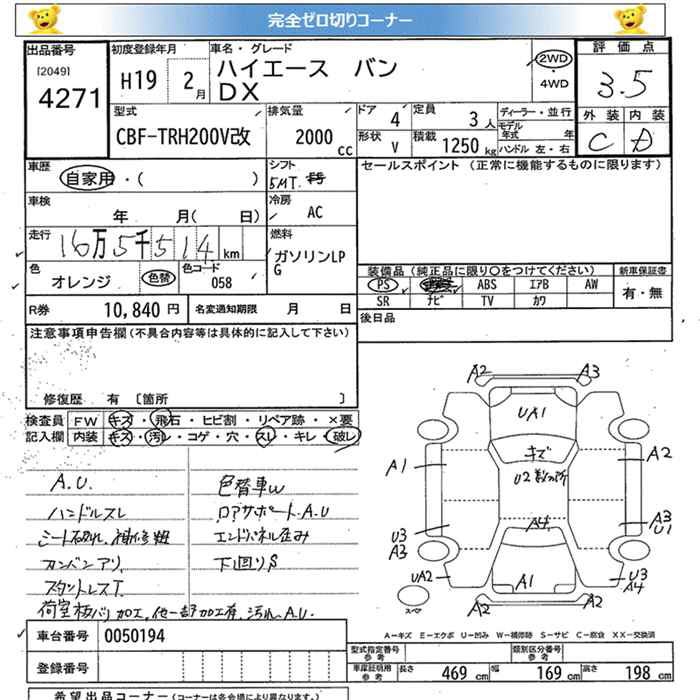 完全ゼロ切りコーナー
出品番号 初度登録年月 車名・グレード 評価点
[2049] 4271 H19 2月 ハイエース バン 2WD・4WD 3.5
DX
外装 内装
C D
型式 排気量 ドア 4 定員 3人 ディーラー・並行
CBF-TRH200V改 2000cc 形状 V 積載 1250kg モデル年式 年
ハンドル 左・右
車歴 シフト セールスポイント (正常に機能するものに限ります)
自家用・( ) 5MT.
車検 冷房
年 月( 日) AC
走行 燃料
16万5千514km ガソリンLPG
色 色替 色コード 装備品(純正品に限り〇をつけてください) 新車保証書
オレンジ 058 PS ABS エアB AW 有・無
SR ナビ TV カワ
R券 10,840円 名変通知期限 月 日 後日品
注意事項申告欄(不具合内容等は具体的に記入して下さい)
修復歴 有 [箇所 ]
検査員 FW キズ・飛石・ヒビ割・リペア跡・×要
記入欄 内装 キズ・汚レ・コゲ・穴・スレ・キレ・破レ
A.U. 色替車W
ハンドルスレ ロアサポートA.U
シート破れ、補修粗 エンドパネル歪み
カンバンアリ 下回りS
スタントレスT.
A2 A3
UA1
キズ
A1 U2数ヶ所 A2
A4
U3 A3
A3 U1
UA2 A1 U3
A4
スペア A2 A2
A-キズ E-エクボ U-凹み W-補修跡 S-サビ C-腐食 XX-交換済
車台番号 0050194 型式指定番号 参考 類別区分番号 参考
登録番号 車庫証明用 参考 長さ 469cm 幅 169cm 高さ 198cm
希望出品コーナー (コーナーは各会場により異なります。)